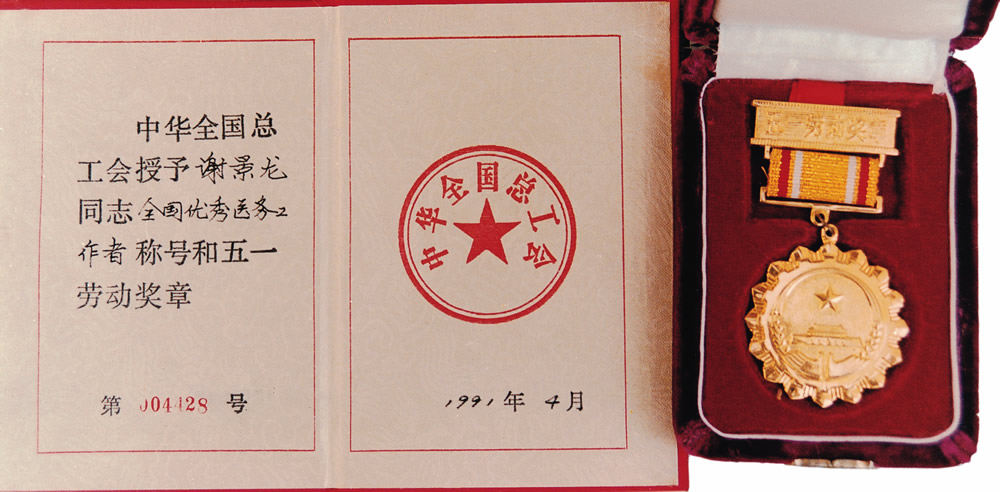 中华全国总
工会授予谢景龙
同志全国优秀医务工
作者称号和五一
劳动奖章
第 004428 号
中华全国总工会
1991年4月
五一劳动奖章